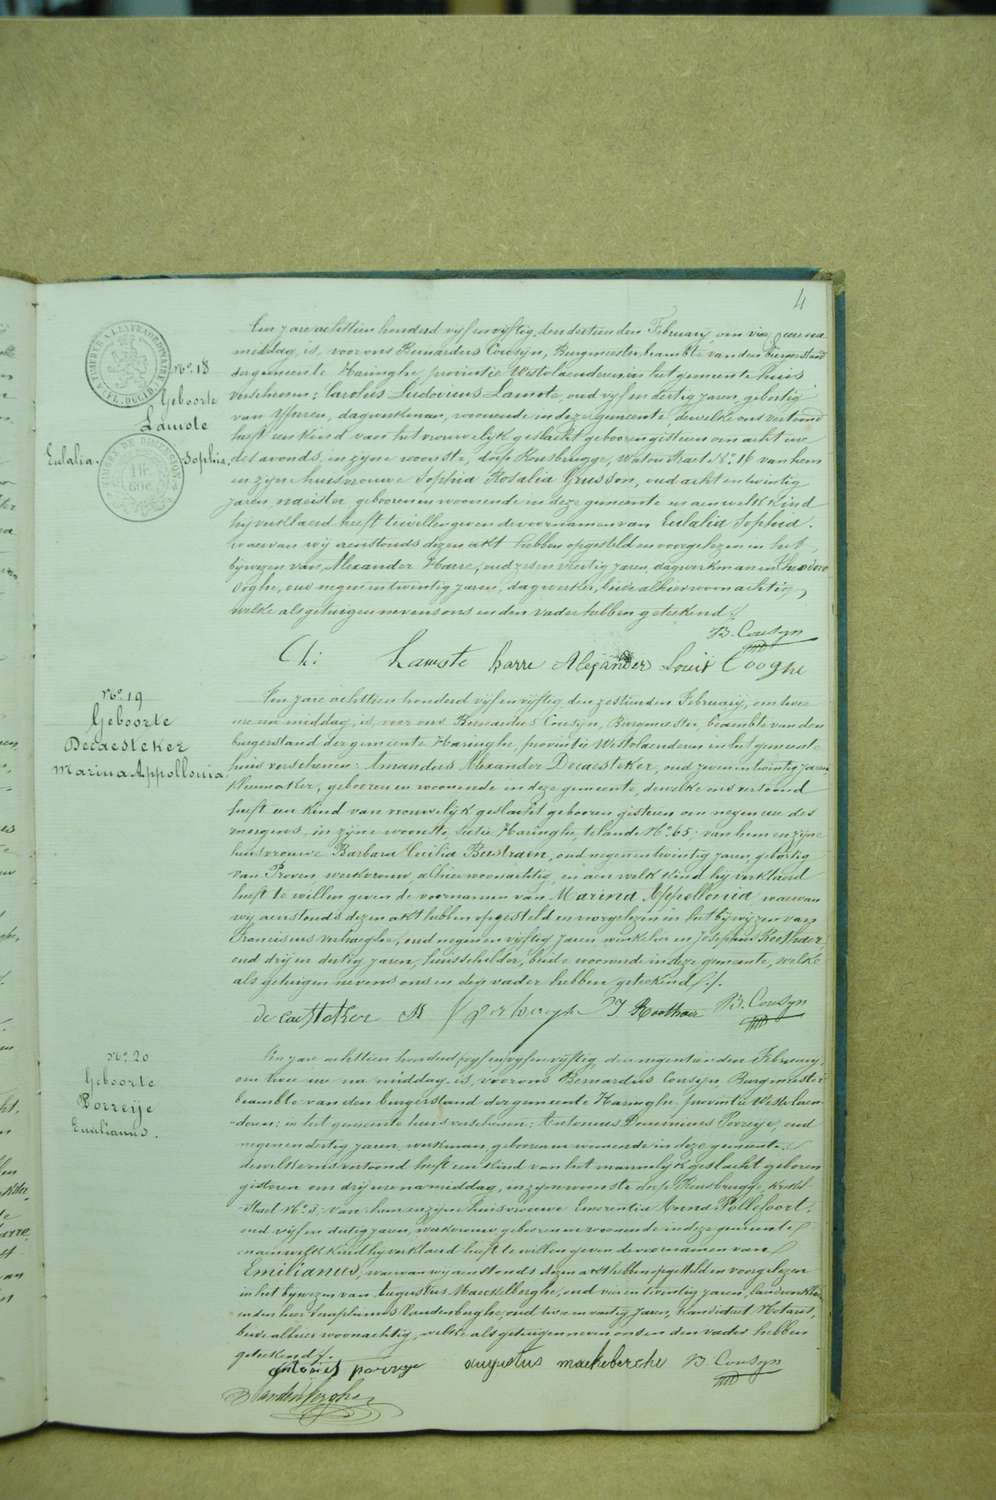 4
N.o 18
Geboorte
Lamote
Eulalia Sophia.
Een jare achttien honderd vyf en vyftig, den dertienden February, om vier uren na
middag, is, voor ons Bernardus Cousyn, Burgmeester, beambte van den burgerstand
der gemeente Haringhe, provintie Westvlaenderen in het gemeente huis
verschenen: Carolus Ludovicus Lamote, oud vyf en dertig jaren, geboortig
van Yperen, dagwerkman, woonende in deze gemeente, dewelke ons vertoond
heeft een kind van het vrouwelyk geslacht geboren gisteren om acht ure
des avonds, in zyne woonste, dorp Rousbrugge, Watou Straet N.o 16 van hem
en zyne huisvrouwe Sophia Rosalia Grusson, oud acht en twintig
jaren, naeister, geboren en woonende in deze gemeente en aen welk kind
hy verklaerd heeft te willen geven de voornamen van Eulalia Sophia.
waervan wy aenstonds dezen akt hebben opgesteld en voorgelezen in het
bywezen van Alexander Harre, oud zes en veertig jaren, dagwerkman en Theodore
Coghe, oud negen en twintig jaren, dagwerker, beide alhier woonachtig,
welke als getuigen nevens ons en den vader hebben geteekend ./.
B. Cousyn
Ch: Lamote harre Alexander Louis Cooghe
N.o 19
Geboorte
Decaesteker
Marina Appollonia
Een jare achttien honderd vyf en vyftig den zestienden February, om twee
ure na middag, is, voor ons Bernardus Cousyn, Burgmeester, beambte van den
burgerstand der gemeente Haringhe, provintie Westvlaenderen in het gemeente
huis verschenen: Amandus Alexander Decaesteker, oud zeven en twintig jaren
kleermaker, geboren en woonende in deze gemeente, dewelke ons vertoond
heeft een kind van vrouwelyk geslacht geboren gisteren om negen ure des
morgens, in zyne woonste, sectie Haringhe, N.o 65. van hem en zyne
huisvrouwe Barbara Cecilia Bustraen, oud negen en twintig jaren, geboortig
van Proven werkvrouw, alhier woonachtig, en aen welk kind hy verklaerd
heeft te willen geven de voornamen van Marina Appollonia, waervan
wy aenstonds dezen akt hebben opgesteld en voorgelezen in het bywezen van
Franciscus Verhaeghe, oud negen en vyftig jaren, winkelier en Josephus Roothaer,
oud dry en dertig jaren, huisschilder, beide woonende in deze gemeente, welke
als getuigen nevens ons en den vader hebben geteekend ./.
de caesteker J Roothaer B. Cousyn
N.o 20
Geboorte
Porreije
Emilianus.
Een jare achttien honderd vyf en vyftig, den negentienden February,
om twee ure na middag is, voor ons Bernardus Cousyn, Burgmeester
beambte van den burgerstand der gemeente Haringhe, provintie Westvlaen-
-deren: in het gemeente huis verschenen: Antonius Dominicus Porreye, oud
negen en dertig jaren, werkman, geboren en woonende in deze gemeente
dewelke ons vertoond heeft een kind van het mannelyk geslacht geboren
gisteren om dry ure na middag, in zyn woonste dorp Rousbrugge,
Straet N.o 3. van hem en zyne huisvrouwe Emerentia Anna Pollefoort,
oud vyf en dertig jaren, werkvrouw, geboren en woonende in deze gemeente
en aen welk kind hy verklaerd heeft te willen geven de voornamen van
Emilianus, waervan wy aenstonds dezen akt hebben opgesteld en voorgelezen
in het bywezen van Augustus Maeckelberghe, oud vier en twintig jaren,
en den heer Seraphinus Vandenberghe, oud twee en veertig jaren, kandidaet Notaris,
beide alhier woonachtig, welke als getuigen nevens ons en den vader hebben
geteekend ./.
antonius porreye augustus maekeberche B. Cousyn
Vandenberghe